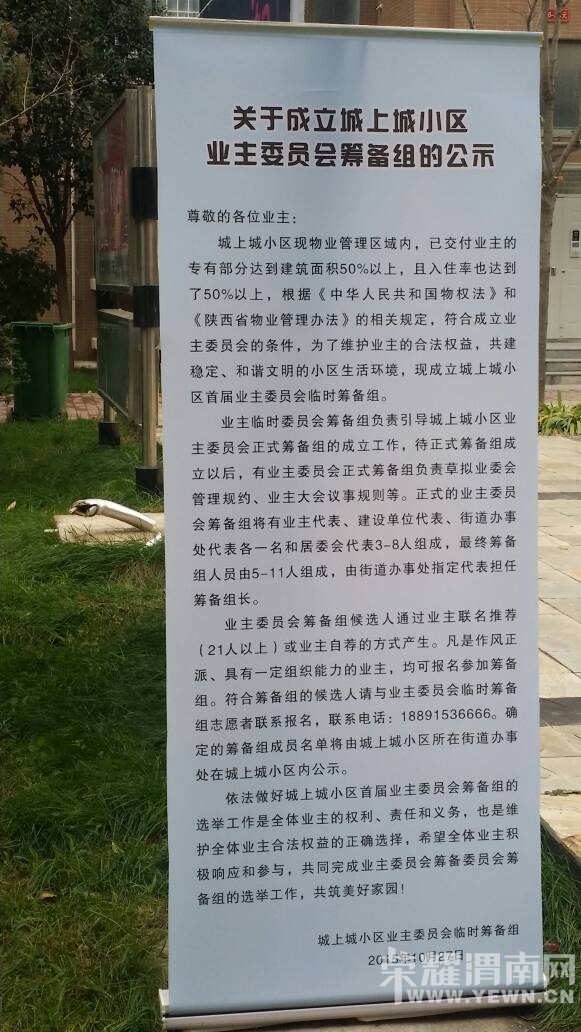 关于成立城上城小区
业主委员会筹备组的公示
尊敬的各位业主：
城上城小区现物业管理区域内，已交付业主的
专有部分达到建筑面积50%以上，且入住率也达到
了50%以上，根据《中华人民共和国物权法》和
《陕西省物业管理办法》的相关规定，符合成立业
主委员会的条件，为了维护业主的合法权益，共建
稳定、和谐文明的小区生活环境，现成立城上城小
区首届业主委员会临时筹备组。
业主临时委员会筹备组负责引导城上城小区业
主委员会正式筹备组的成立工作，待正式筹备组成
立以后，有业主委员会正式筹备组负责草拟业委会
管理规约、业主大会议事规则等。正式的业主委员
会筹备组将有业主代表、建设单位代表、街道办事
处代表各一名和居委会代表3-8人组成，最终筹备
组人员由5-11人组成，由街道办事处指定代表担任
筹备组长。
业主委员会筹备组候选人通过业主联名推荐
（21人以上）或业主自荐的方式产生。凡是作风正
派、具有一定组织能力的业主，均可报名参加筹备
组。符合筹备组的候选人请与业主委员会临时筹备
组志愿者联系报名，联系电话：18891536666。确
定的筹备组成员名单将由城上城小区所在街道办事
处在城上城小区内公示。
依法做好城上城小区首届业主委员会筹备组的
选举工作是全体业主的权利、责任和义务，也是维
护全体业主合法权益的正确选择，希望全体业主积
极响应和参与，共同完成业主委员会筹备委员会筹
备组的选举工作，共筑美好家园！
城上城小区业主委员会临时筹备组
2015年10月27日
荣耀渭南网
WWW.YEWN.CN